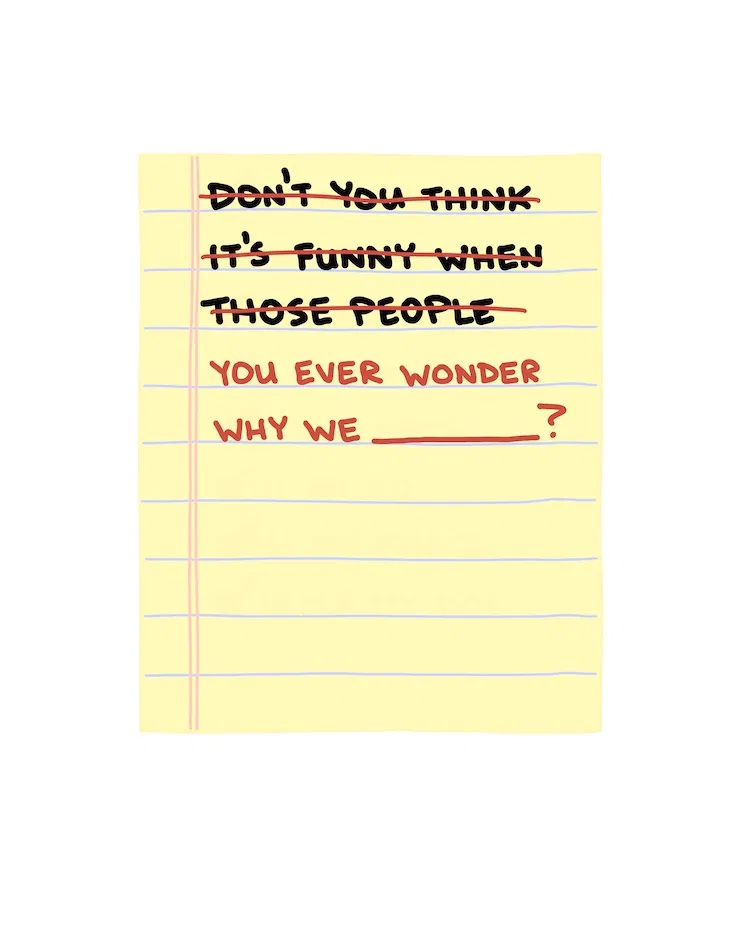 DON'T YOU THINK
IT'S FUNNY WHEN
THOSE PEOPLE
YOU EVER WONDER
WHY WE ________?